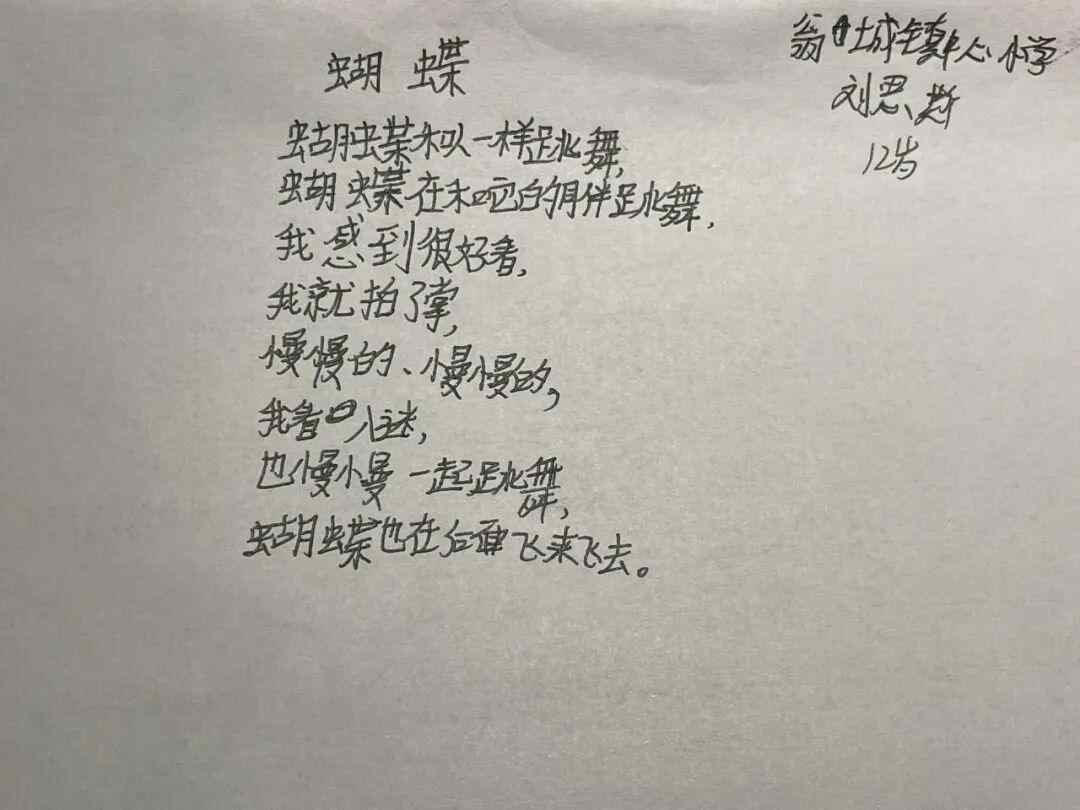 翁城镇中心小学
刘思斯
12岁
蝴蝶
蝴蝶和以一样跳舞,
蝴蝶在和它的朋伴跳舞,
我感到很好看,
我就拍了掌,
慢慢的、慢慢的,
我看入迷,
也慢慢一起跳舞,
蝴蝶也在后面飞来飞去。